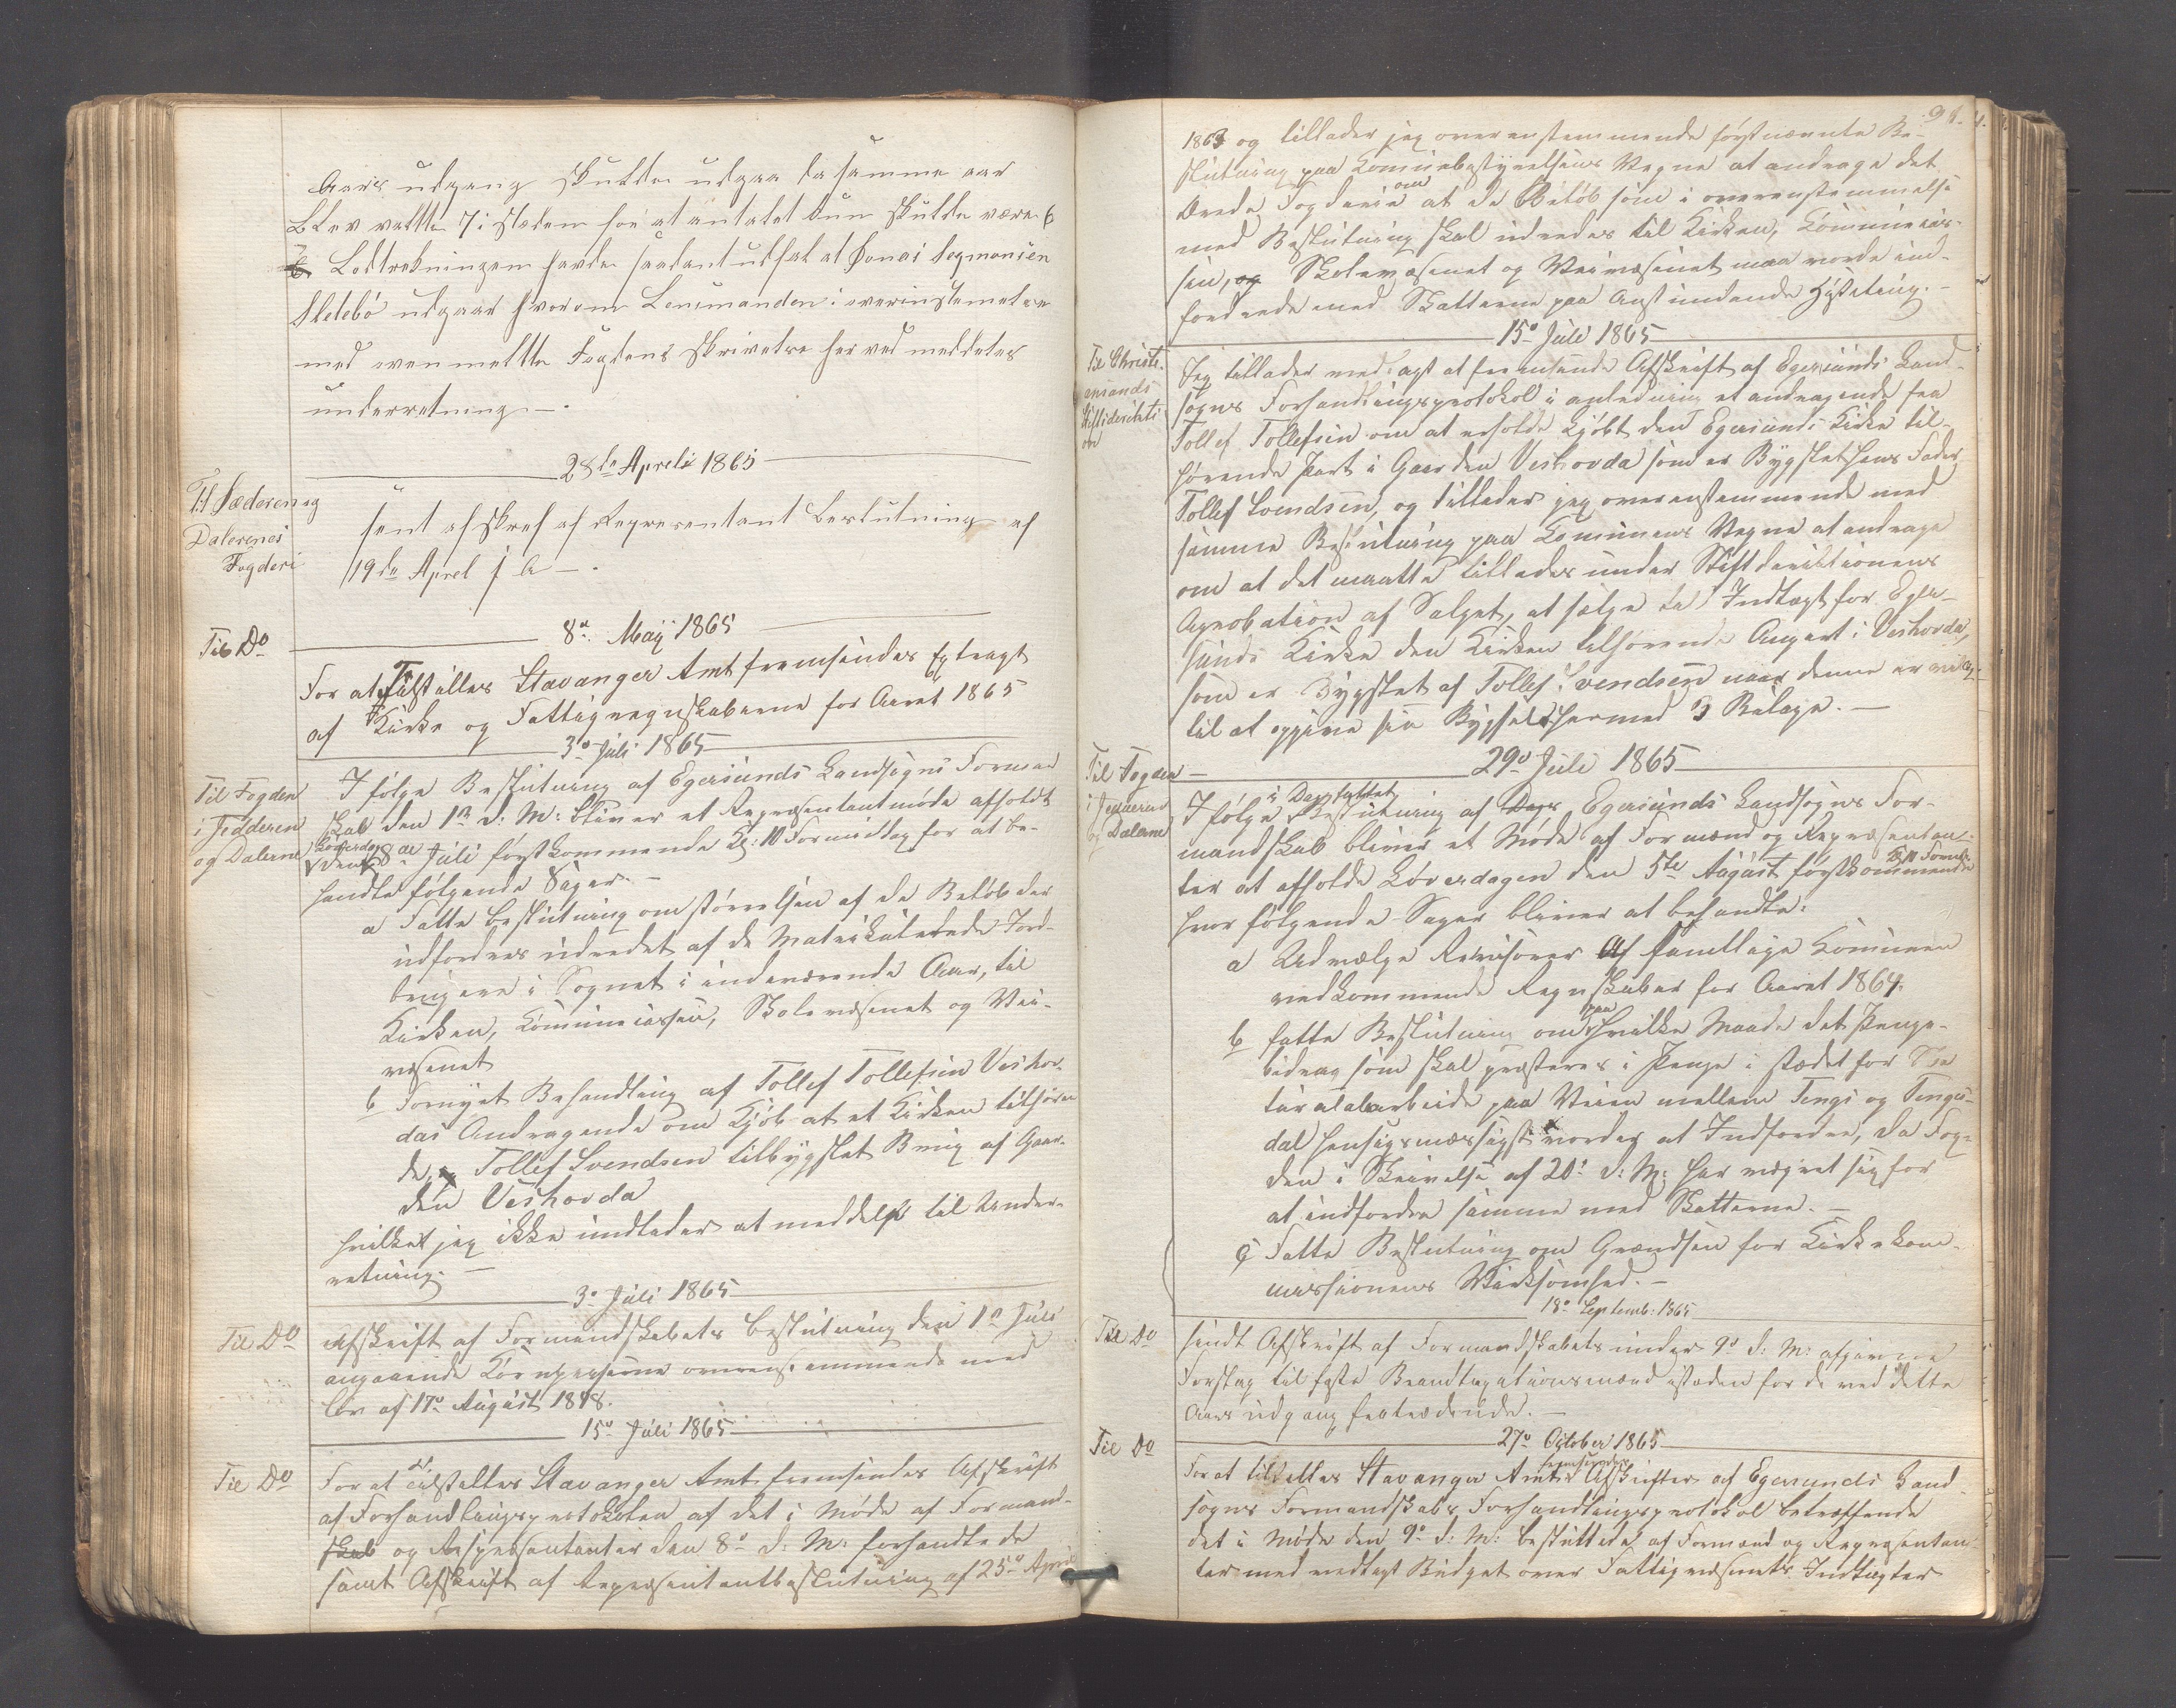 Aars udgang skulde udgaa da samme aar
blev valtte 7 i steden for at antalet kun skulde være 6
Lodtrekningen havde saadant udfal at Jonas Segmonsen
Sletebö udgaar hvorom Lensmanden i overinstemelse
med ovenmeltte Fogdens skrivelse herved meddeles
underretning —.
28de Aprelis 1865
Til Jæderen og
Dalerenes
Fogderi
sent afskref af Representant Beslutning af
19de Aprel f A —.
8de May 1865
Til Do
For at Tilstilles Stavanger Amt fremsendes Extragt
af Kirke og Fattigregnskaberne for Aaret 1865
3de Juli 1865
Til Fogden
i Jedderen
og Dalerne
I følge Beslutning af Egersunds Landsogns Formand-
skab den 1de d: M: bliver et Repræsentantmøde afholdt
Løverdag
den 8de Juli førstkommende Kl: 10 Formiddag for at be-
handle følgende Sager. —
a Fatte beslutning om størrelsen af de Beløb der
udfordres udredet af de Matrikulerede Jord-
brugere i Sognet i indeværende Aar, til
Kirken, Kommunekassen, Skolevæsenet og Vei-
væsenet
b Fornyet Behandling af Tollef Tollefsen Veshov-
das Andragende om Kjøb at et Kirken tilhøren-
de, Tollef Svendsen tilbygslet Brug af Gaar-
den Veshovda
hvilket jeg ikke undlader at meddele til Under-
retning. —
3de Juli 1865
Til Do
Afskrift af Formandskabets beslutning den 1de Juli
angaaende Kornpriserne overensstemmende med
lov af 17de August 1848.
15de Juli 1865
Til Do
For at tilstilles Stavanger Amt fremsendes Afskrift
af Forhandlingsprotokolen af det i Møde af Formand-
skab og Repræsentanter den 8de d: M: forhandlede
samt Afskrift af Repræsentantbeslutning af 25de April
91.
1863 og tillader jeg overenstemmende førstnævnte Be-
slutning paa Komunebestyrelsens Vegne at andrage det
ærede Fogderie om at de Beløb som i overenstemmelse
med Beslutning skal udredes til Kirken, Kommunekas-
sen, og Skolevæsenet og Veivæsenet maa vorde ind-
fordrede med Skatterne paa anstundende Høstting. —
15de Juli 1865
Til Christi-
ansands
Stiftsdirekti-
on
Jeg tillader med agt at fremsende Afskrift af Egersunds Land-
sogns Forhandlingsprotokol i anledning et andragende fra
Tollef Tollefsen om at erholde kjøbt den Egersunds Kirke til-
hørende Part i Gaarden Veshovda som er Bygslet hans Fader
Tollef Svendsen, og tillader jeg overenstemmende med
samme Beslutning paa Komunens Vegne at andrage
om at det maatte tillades under Stiftdirektionens
Aprobation af Salget, at sælge til Indtægt for Eger-
sunds Kirke den Kirken tilhørende Anpart i Veshovda
som er Bygslet af Tollef Svendsen naar denne er villig
til at opgive sin Bygsel hermed 3 Bilage. —
29de Juli 1865
Til Fogden
i Jedderen
og Dalerne
i Dag fattet
I følge Beslutning af Dags Egersunds Landsogns For-
mandskab bliver et Møde af Formænd og Repræsentan-
ter at afholde Løverdagen den 5te August førstkommende
hvor følgende Sager bliver at behandle:
a Udvælge Revisorer af samtlige Komunen
vedkommende Regnskaber for Aaret 1864.
b fatte Beslutning om paa hvilke Maade det Penge-
bidrag som skal præsteres i Penge i stædet for Na-
turalarbeide paa Veien mellem Tengs og Tengs-
dal hensigsmæssigst vorder at Indfordre, da Fog-
den i Skrivelse af 20de d: M: har vægret sig for
at indfordre samme med Skatterne. —
c Fatte Beslutning om Grændsen for Kirkekom-
missionens Virksomhed. —
18de Septemb: 1865
Til Do
sendt Afskrift af Formandskabets under 9de d: M: afgivne
Forslag til faste Brandtaxationsmænd istæden for de ved dette
Aars udgang fratrædende. —
27de October 1865
Til Do
fremsendes
For at tilstilles Stavanger Amt Afskrifter af Egersunds Land-
sogns Formandskabs Forhandlingsprotokol betræffende
det i Møde den 9de d: M: besluttede af Formænd og Repræsentan-
ter med vedtagt Budget over Fattigvæsenets Indtægter